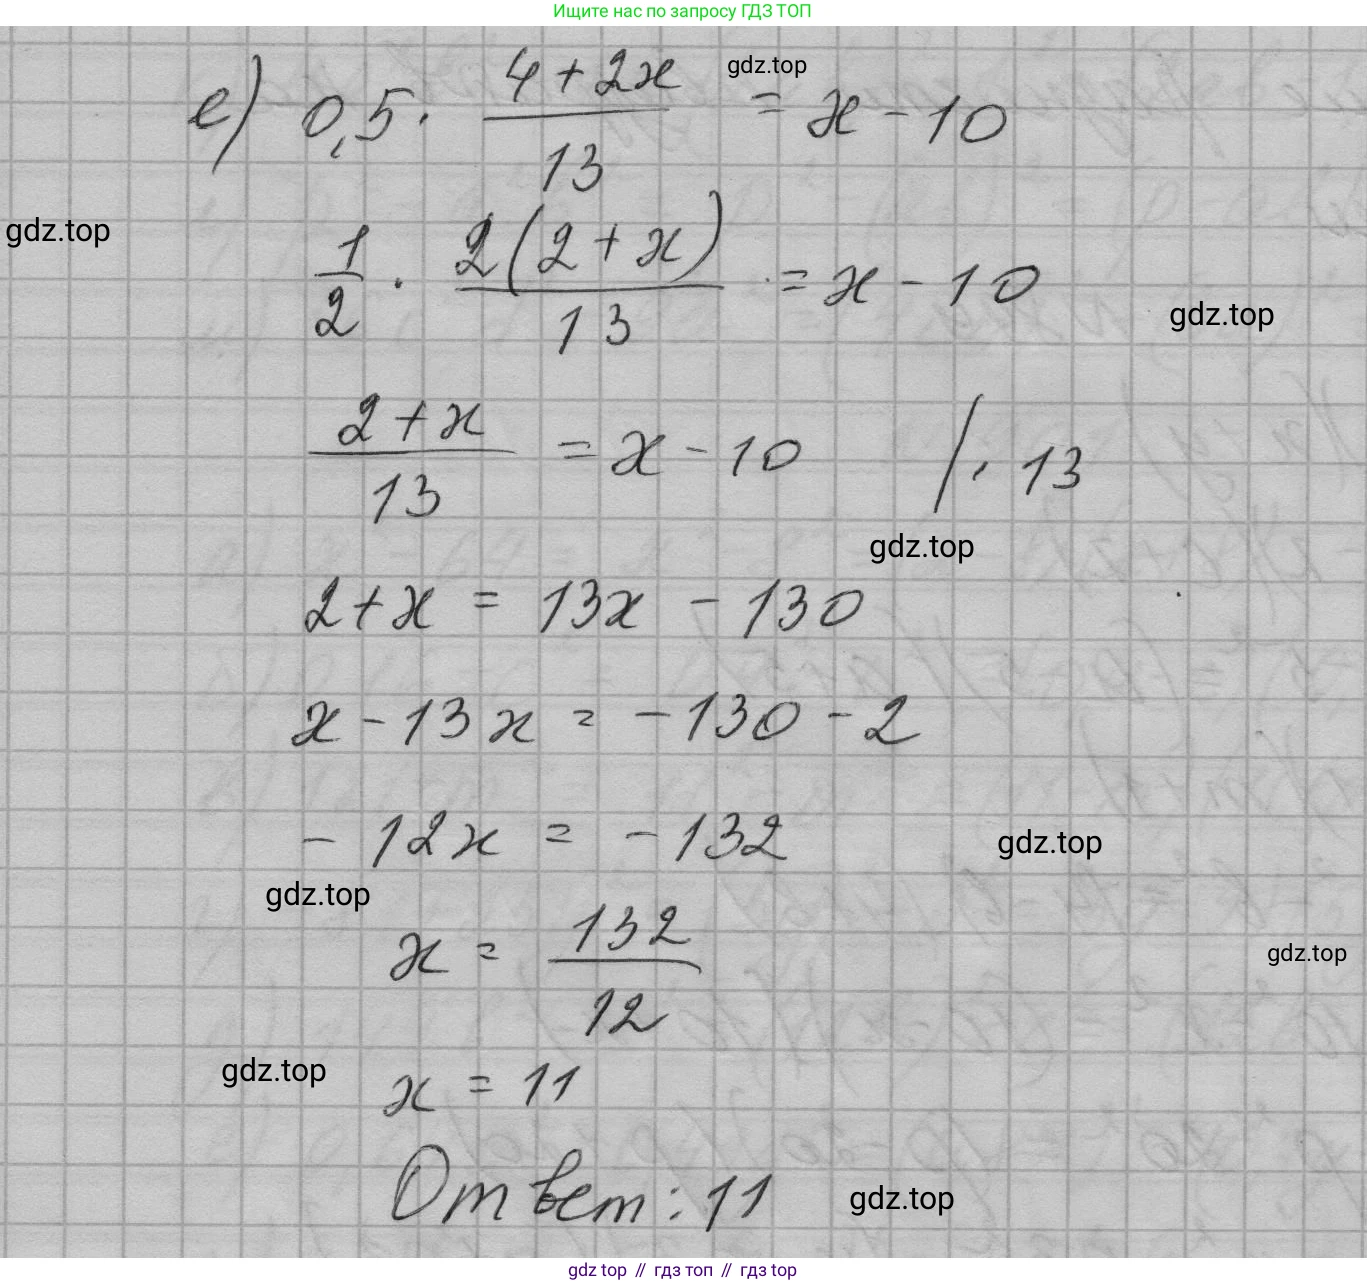 Ищите нас по запросу ГДЗ ТОП
е) 0,5 · (4 + 2x)/13 = x - 10
gdz.top
gdz.top
1/2 · 2(2 + x)/13 = x - 10
gdz.top
(2 + x)/13 = x - 10 | · 13
gdz.top
2 + x = 13x - 130
x - 13x = -130 - 2
-12x = -132
gdz.top
gdz.top
x = 132/12
gdz.top
gdz.top
x = 11
Ответ: 11
gdz.top
gdz top // гдз топ // gdz top